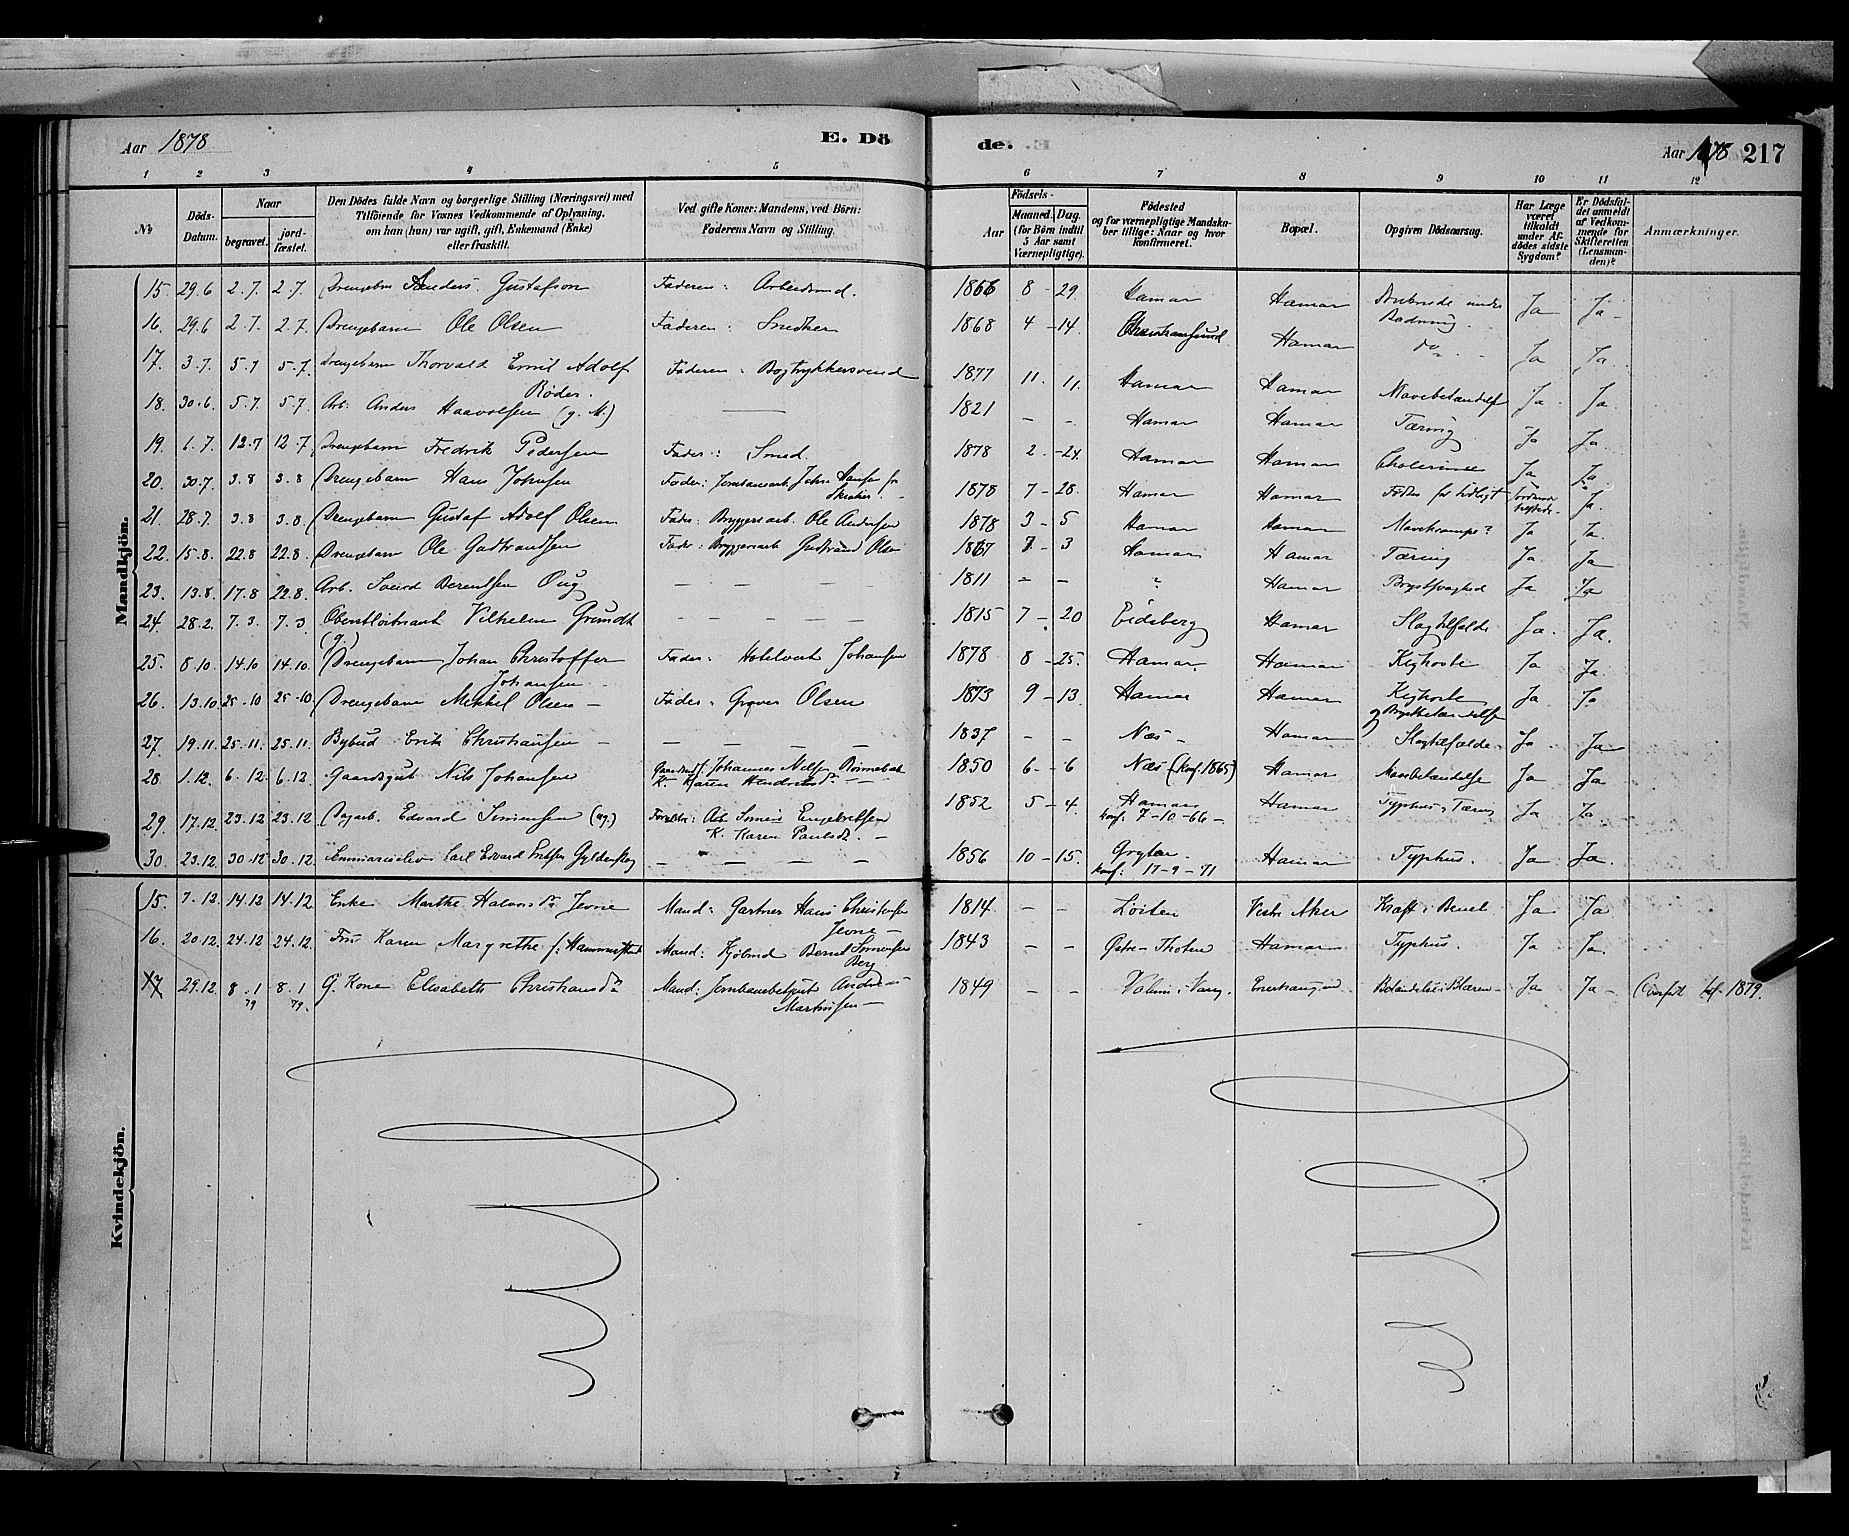 Aar 1878
E. Dö
de.
Aar 1878 217
1 2 3 4 5 6 7 8 9 10 11 12
No
Döds-Datum.
Naar
begravet.
jord-fæstet.
Den Dödes fulde Navn og borgerlige Stilling (Næringsvei) med
Tilföiende for Voxnes Vedkommende af Oplysning,
om han (hun) var ugift, gift, Enkemand (Enke)
eller fraskilt.
Ved gifte Koner: Mandens, ved Börn:
Faderens Navn og Stilling.
Födsels-
Aar
Maaned. Dag.
(for Börn indtil
5 Aar samt
Værnepligtige).
Födested
og for værnepligtige Mandska-
ber tillige: Naar og hvor
konfirmeret.
Bopæl.
Opgiven Dödsaarsag.
Har Læge
været
tilkaldt
under Af-
dödes sidste
Sygdom?
Er Dödsfal-
det anmeldt
af Vedkom-
mende for
Skifteretten
(Lensman-
den)?
Anmærkninger.
Mandkjön.
15. 29.6 2.7. 2.7. Drengebn Anders Gustafson Faderen: Arbeidsmd. 1866 8 - 29 Hamar Hamar Druknede under Ja Ja -
Badning
16. 29.6 2.7. 2.7. Drengebarn Ole Olsen Faderen: Snedker 1868 4 - 14. Christiansund Hamar do Ja Ja
17. 3.7. 5.7 5.7. Drengebarn Thorvald Emil Adolf Faderen: Bogtrykkersvend 1877 11. 11. Hamar Hamar Mavebetændelse Ja Ja
Røder.
18. 30.6. 5.7. 5.7. Arb. Anders Haavolsen (g. M.) — 1821 - - Hamar Hamar Tæring Ja Ja
19. 6.7. 12.7 12.7 Drengebarn Fredrik Pedersen Fader: Smed 1878 2. - 24. Hamar Hamar Cholerine Ja Ja
20. 30.7. 3.8 3.8 Drengebarn Hans Johnsen Fader: John Hansen 1878 7 - 28. Hamar Hamar Fødtes for tidligt Ja.
21. 28.7. 3.8 3.8. Drengebarn Gustaf Adolf Olsen Fader: Bryggeriarb. Ole Andersen 1878 3 - 5 Hamar Hamar Mavekrampe? Ja Ja.
22. 15.8. 22.8 22.8. Drengebarn Ole Gudbrandsen Fader: Bryggeriarb Gudbrand Olsen 1867 7 - 3 Hamar Hamar Tæring Ja Ja
23. 13.8. 17.8 22.8. Arb. Berentsen — — — — 1811 - - ? Hamar Brystsvaghed Ja Ja
24. 28.2. 7.3. 7.3 Oberstløitnant Vilhelm Grundt — — — — 1815 7 - 20 Eidsberg Hamar Slagtilfælde Ja. Ja.
(g.)
25. 8.10. 14.10 14.10. Drengebarn Johan Christoffer Fader: Hotelvert Johansen 1878 8 - 25. Hamar Hamar Kighoste Ja Ja
Johansen
26. 13.10 25.10 25.10 Drengebarn Mikkel Olsen - Fader: Graver Olsen 1873 9 - 13. Hamar Hamar Kighoste Ja Ja
og Brystbetændelse
27. 19.11. 25.11. 25.11. Bybud Erik Christiansen - — — — — 1837 - - Næs - Hamar Slagtilfælde. Ja Ja
28. 1.12. 6.12. 6.12. Gaardsgut Nils Johansen Johannes Nilsen 1850 6 - 6 Næs (konf. 1865) Hamar Mavebetændelse Ja Ja
K. Karen
29. 17.12. 23.12 23.12 Dagarb. Edvard Simensen (ug.) Forældre: Arb. Simen Engebretsen 1852 5 - 4. Hamar Hamar Typhus, Tæring Ja Ja
K. Karen Paulsdr. - konf: 7-10-66 -
30. 23.12 30.12 30.12. Seminarieelev Carl Edvard — — — — 1856 10 - 15. Grytten Hamar Typhus. Ja Ja.
konf: 17-9-71
Kvindekjön.
15. 7.12. 14.12 14.12 Enke Marthe Halvorsdr Jevne Mand: Gartner Hans Christensen 1814 - - Löiten Vestre Aker Kræft i Benet Ja Ja
Jevne -
16. 20.12. 24.12 24.12 Fru Karen Margrethe f. Hammerstad Mand: Kjøbmd Bernt Simensen 1843 - - Østre-Thoten Hamar Typhus. Ja Ja.
Berg
17 29.12. 8.1 8.1 G. Kone Elisabeth Christiansdr Mand: Jernbanebetjent Andreas 1849 - - i Vang. Betændelse i Blæren - Ja Ja - (Overført til 1879.
79 79. Martinsen -